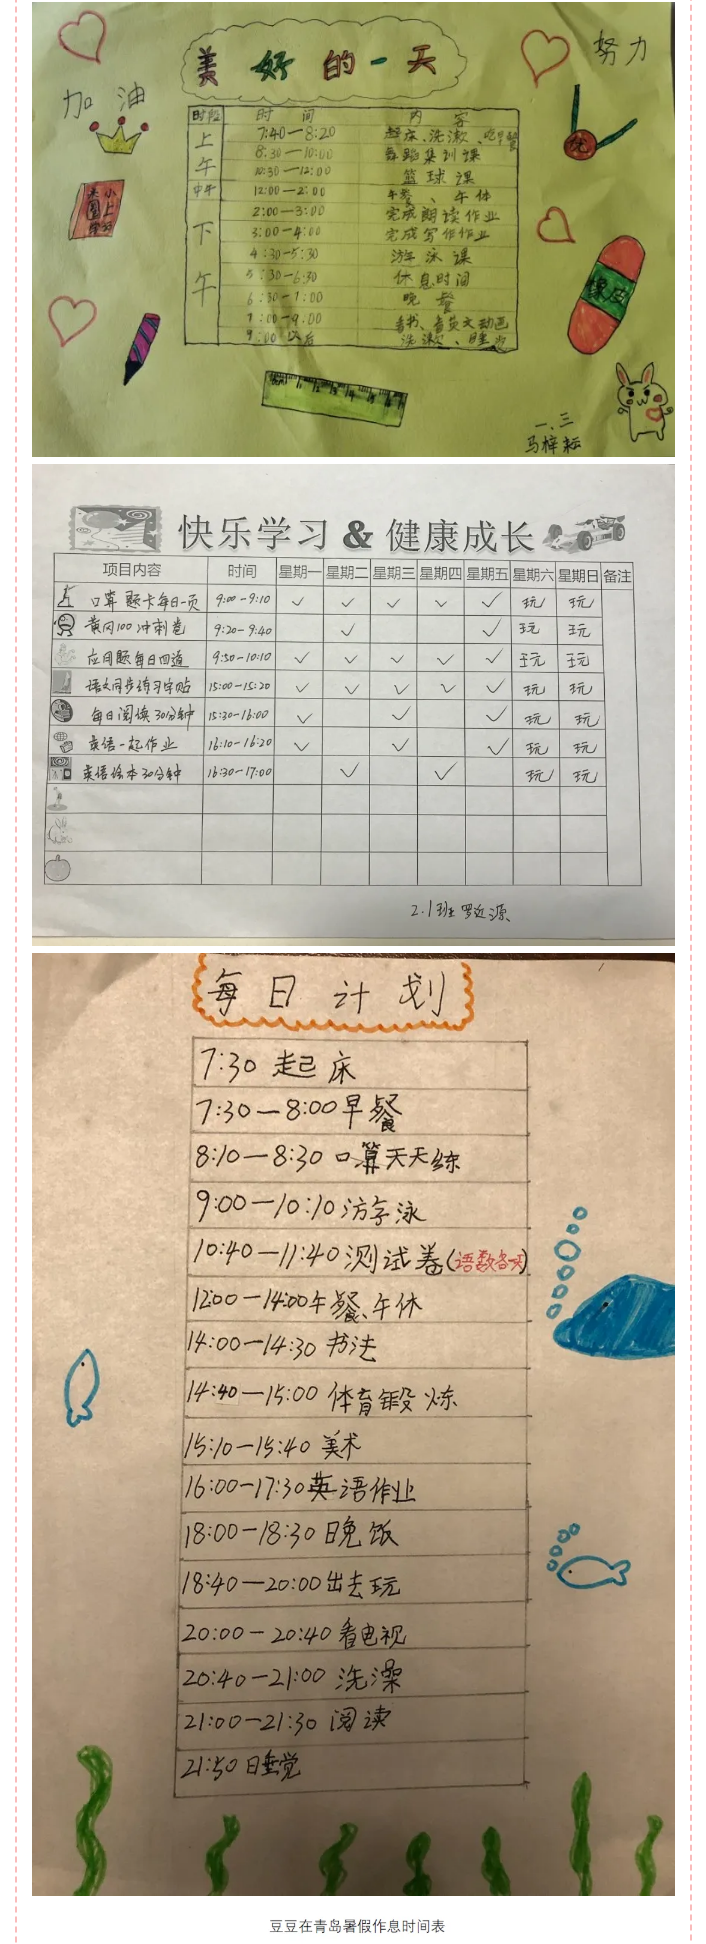 美好的一天
努力
加油
时段 时间 内容
上午 7:40—8:20 起床、洗漱、吃早餐
8:30—10:00 舞蹈集训课
10:30—12:00 篮球课
中午 12:00—2:00 午餐、午休
下午 2:00—3:00 完成朗读作业
3:00—4:00 完成写作作业
4:30—5:30 游泳课
5:30—6:30 休息时间
6:30—7:00 晚餐
7:00—9:00 看书、看英文动画
9:00以后 洗漱、睡觉
橡皮
一、三
马梓耘
快乐学习 & 健康成长
项目内容 时间 星期一 星期二 星期三 星期四 星期五 星期六 星期日 备注
口算题卡每日一页 9:00-9:10 ✓ ✓ ✓ ✓ ✓ 玩 玩
黄冈100冲刺卷 9:20-9:40 ✓ ✓ 玩 玩
应用题每日四道 9:50-10:10 ✓ ✓ ✓ ✓ ✓ 玩 玩
语文同步练习字贴 15:00-15:20 ✓ ✓ ✓ ✓ ✓ 玩 玩
每日阅读30分钟 15:30-16:00 ✓ ✓ ✓ 玩 玩
英语一起作业 16:10-16:20 ✓ ✓ ✓ 玩 玩
英语绘本30分钟 16:30-17:00 ✓ ✓ 玩 玩
2.1班 罗近源
每日计划
7:30 起床
7:30—8:00 早餐
8:10—8:30 口算天天练
9:00—10:10 游泳
10:40—11:40 测试卷(语数各一天)
12:00—14:00 午餐、午休
14:00—14:30 书法
14:40—15:00 体育锻炼
15:10—15:40 美术
16:00—17:30 英语作业
18:00—18:30 晚饭
18:40—20:00 出去玩
20:00—20:40 看电视
20:40—21:00 洗澡
21:00—21:30 阅读
21:50 睡觉
豆豆在青岛暑假作息时间表